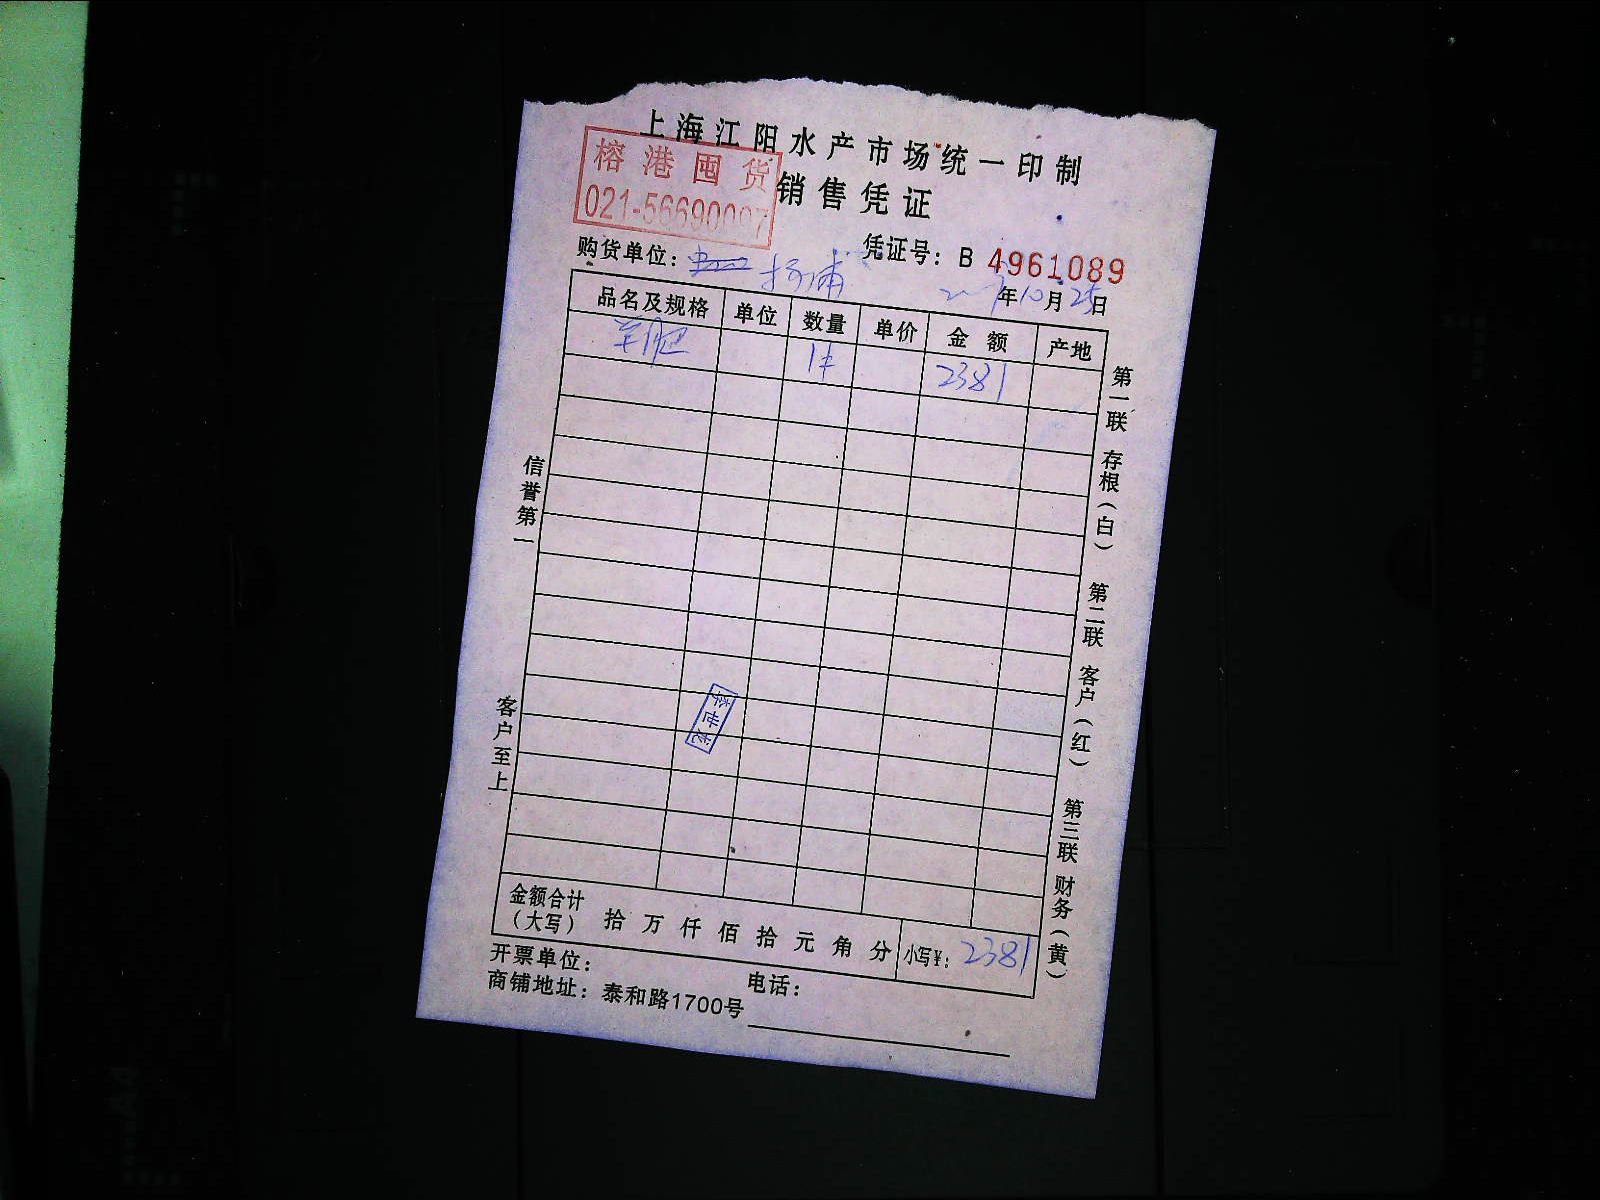 上海江阳水产市场统一印制
榕港囤货
021-56690097
销售凭证
凭证号：B 4961089
购货单位： 杨浦
年10月25日
品名及规格 单位 数量 单价 金额 产地
羊肥 1件 2381
信誉第一
客户至上
第一联 存根（白） 第二联 客户（红） 第三联 财务（黄）
李世龙
金额合计（大写） 拾 万 仟 佰 拾 元 角 分 小写¥：2381
开票单位： 电话：
商铺地址：泰和路1700号